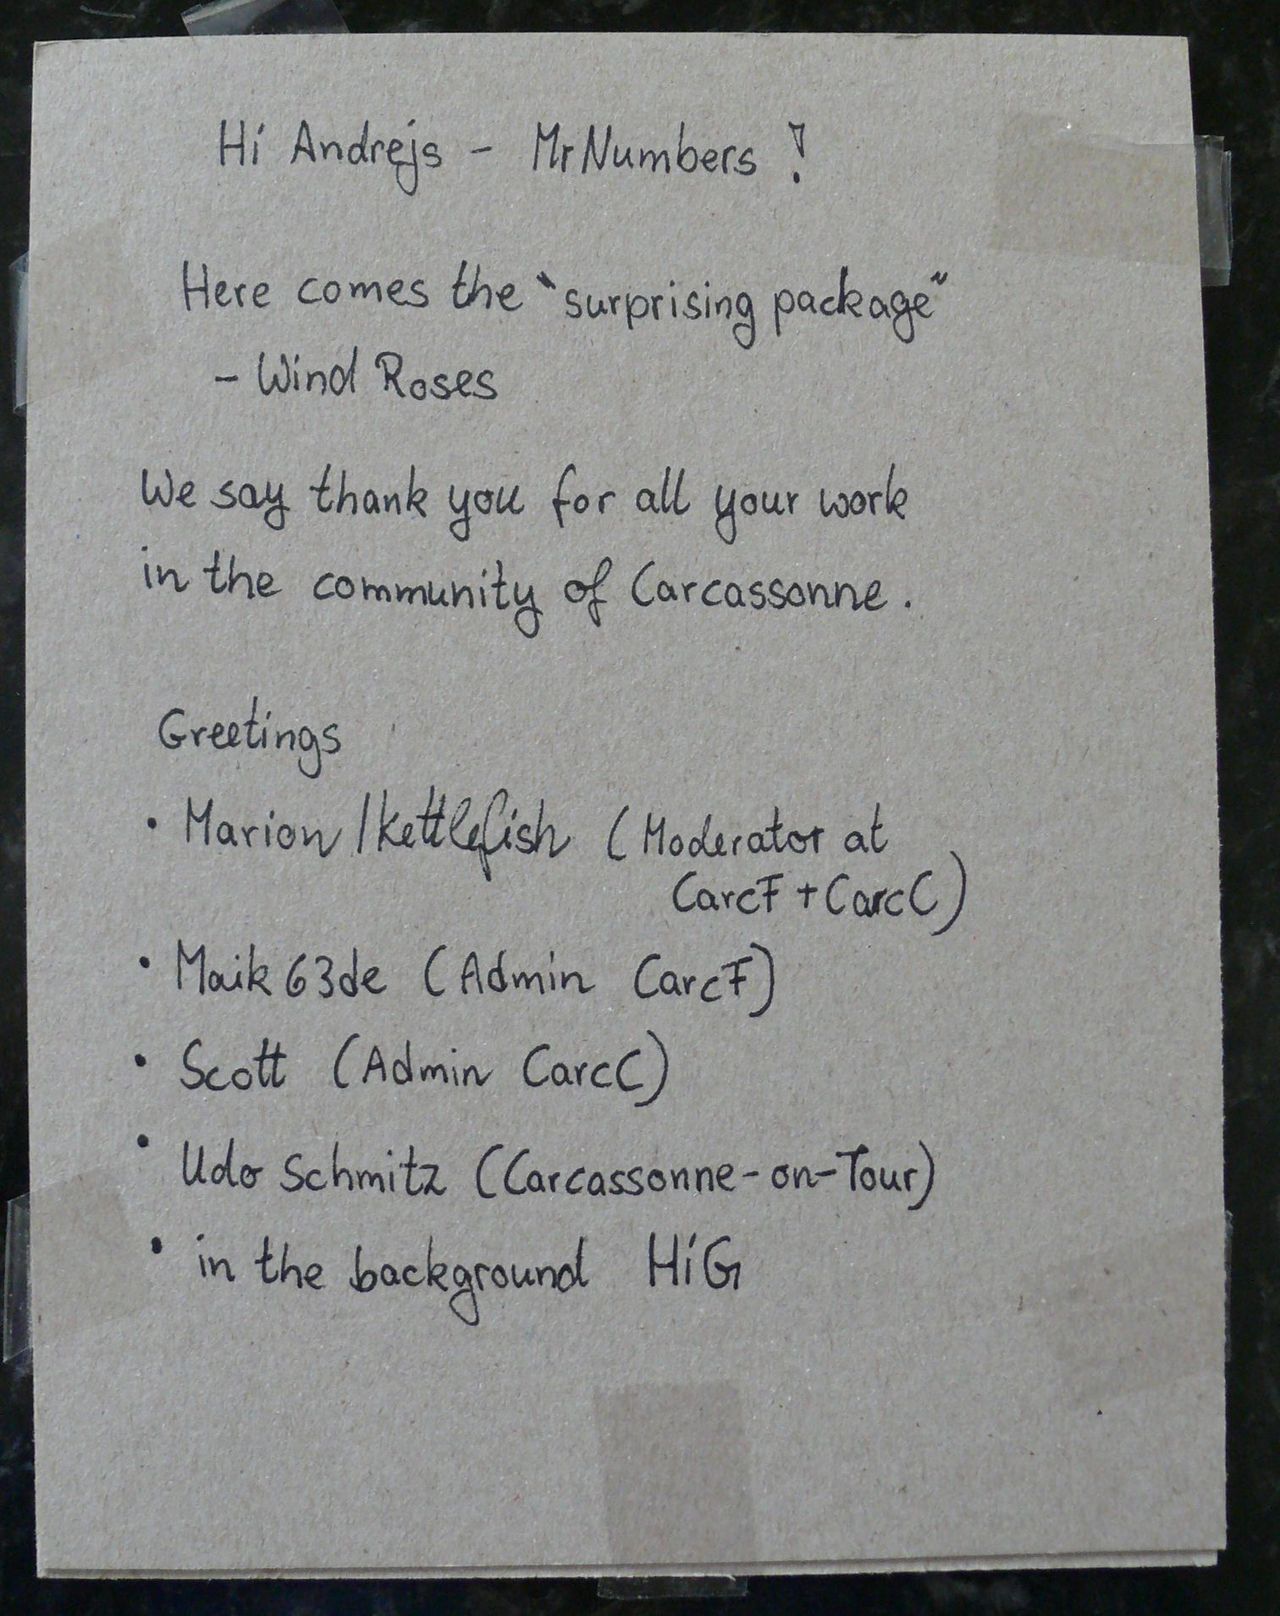 Hi Andrejs - MrNumbers !
Here comes the "surprising package"
- Wind Roses
We say thank you for all your work
in the community of Carcassonne.
Greetings
• Marion / Kettlefish (Moderator at
CarcF + CarcC)
• Maik63de (Admin CarcF)
• Scott (Admin CarcC)
• Udo Schmitz (Carcassonne-on-Tour)
• in the background HiG